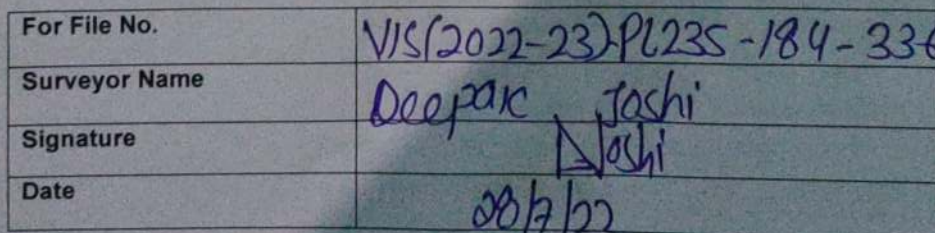 For File No. VIS(2022-23)-PL235-184-336
Surveyor Name Deepak Joshi
Signature DJoshi
Date 28/7/22